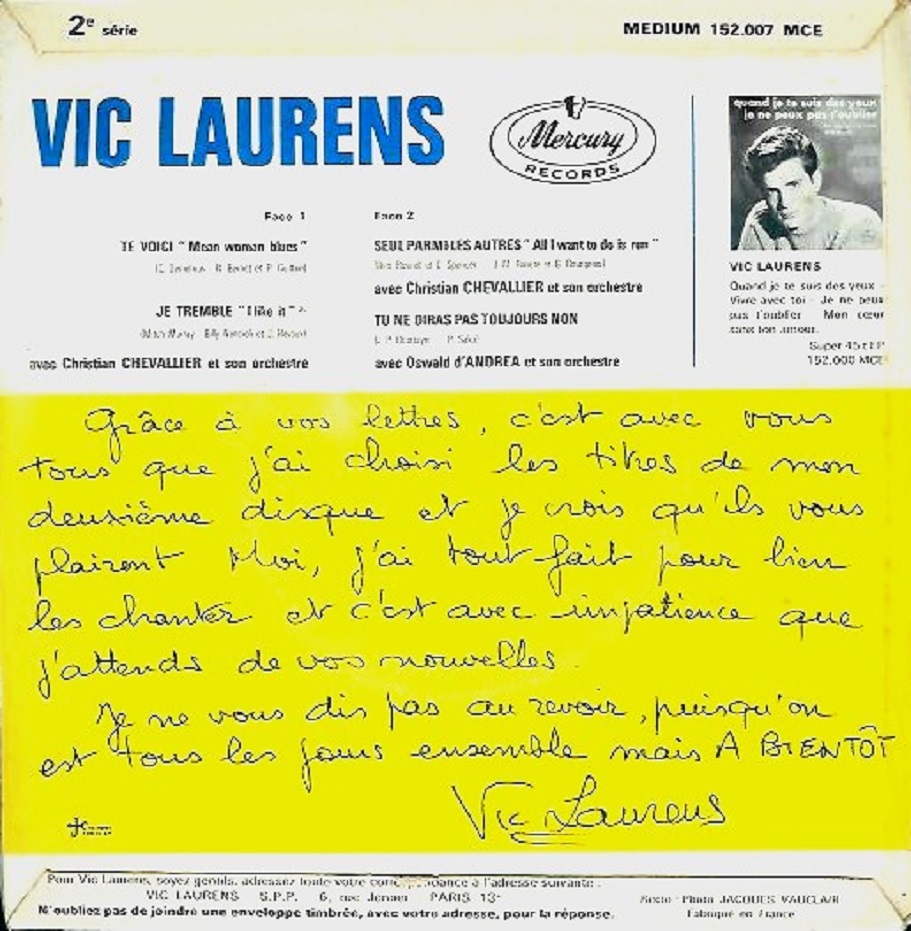 2e série
MEDIUM 152.007 MCE
VIC LAURENS
Mercury
RECORDS
Face 1
TE VOICI " Mean woman blues "
JE TREMBLE " I like it "
avec Christian CHEVALLIER et son orchestre
Face 2
SEUL PARMI LES AUTRES " All I want to do is run "
avec Christian CHEVALLIER et son orchestre
TU NE DIRAS PAS TOUJOURS NON
avec Oswald d'ANDREA et son orchestre
quand je te suis des yeux
je ne peux pas t'oublier
VIC LAURENS
Quand je te suis des yeux -
Vivre avec toi - Je ne peux
pas t'oublier - Mon cœur
sans ton amour.
Super 45 t EP
152.000 MCE
Grâce à vos lettres, c'est avec vous
tous que j'ai choisi les titres de mon
deuxième disque et je crois qu'ils vous
plairont Moi, j'ai tout fait pour bien
les chanter et c'est avec impatience que
j'attends de vos nouvelles.
Je ne vous dis pas au revoir, puisqu'on
est tous les jours ensemble mais A BIENTÔT
Vic Laurens
Pour Vic Laurens, soyez gentils, adressez toute votre correspondance à l'adresse suivante :
VIC LAURENS S.P.P. 6, rue Jenner PARIS 13e
N'oubliez pas de joindre une enveloppe timbrée, avec votre adresse, pour la réponse.
Recto : Photo JACQUES VAUCLAIR
Fabriqué en France